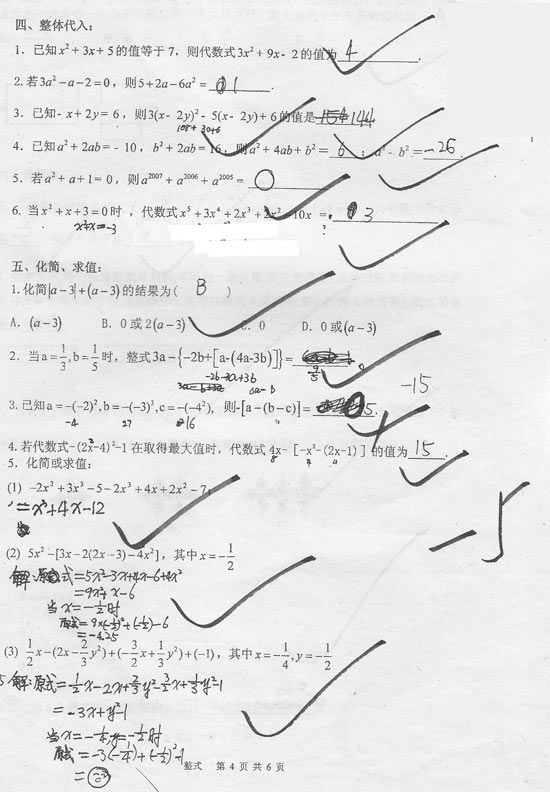 四、整体代入：
1. 已知x²＋3x＋5的值等于7，则代数式3x²＋9x－2的值为 4 .
2.若3a²－a－2＝0，则5＋2a－6a²＝ 1 .
3. 已知－x＋2y＝6，则3(x－2y)²－5(x－2y)＋6的值是 144
108+30+6
4. 已知a²＋2ab＝－10，b²＋2ab＝16，则a²＋4ab＋b²＝ 6 ；a²－b²＝ －26 .
5. 若a²＋a＋1＝0，则a²⁰⁰⁷＋a²⁰⁰⁶＋a²⁰⁰⁵＝ 0
6. 当x²＋x＋3＝0时，代数式x⁵＋3x⁴＋2x³＋2x²－10x＝ 3
x²+x=-3
五、化简、求值：
1.化简|a－3|＋(a－3)的结果为（ B ）
A. (a－3) B. 0或2(a－3) C. 0 D. 0或(a－3)
2. 当a＝1/3,b＝1/5时，整式3a－{－2b＋[a－(4a－3b)]}＝
-2b-3a+3b
6a-b
9/5
-15
3.已知a＝－(－2)²,b＝－(－3)³,c＝－(－4²)，则－[a－(b－c)]＝ 15.
-4 27 16
4.若代数式－(2x－4)²－1在取得最大值时，代数式4x－[－x²－(2x－1)]的值为 15 .
8 4 4
5. 化简或求值：
(1) －2x²＋3x³－5－2x³＋4x＋2x²－7；
=x³+4x-12
-5
(2) 5x²－[3x－2(2x－3)－4x²]，其中x＝－1/2
解:原式=5x²-3x+4x-6+4x²
=9x²+x-6
当x=-1/2时
原式=9×(-1/2)²+(-1/2)-6
=-4.25
(3) 1/2x－(2x－2/3y²)＋(－3/2x＋1/3y²)＋(－1)，其中x＝－1/4,y＝－1/2
解:原式=1/2x-2x+2/3y²-3/2x+1/3y²-1
=-3x+y²-1
当x=-1/4,y=-1/2时
原式=-3(-1/4)+(-1/2)²-1
=0
整式 第 4 页 共 6 页